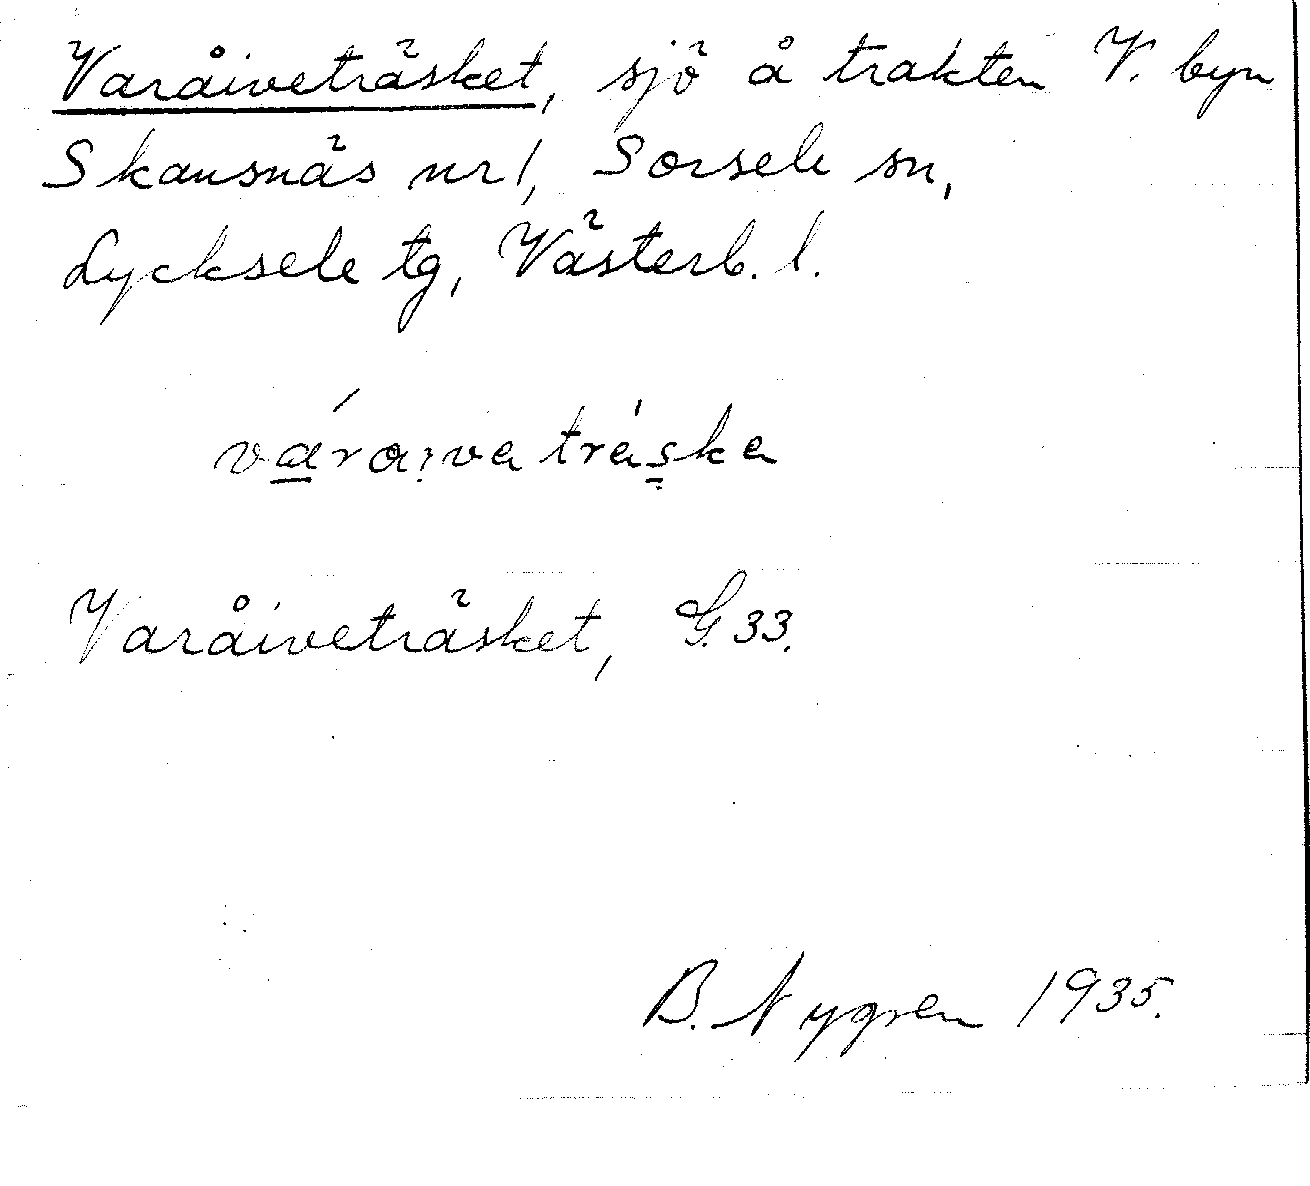 Varåiveträsket, sjö å trakten V. byn
Skansnäs nr 1, Sorsele sn,
Lycksele tg, Västerb. l.
váraiva tráska
Varåiveträsket, G. 33.
B. Nygren 1935.